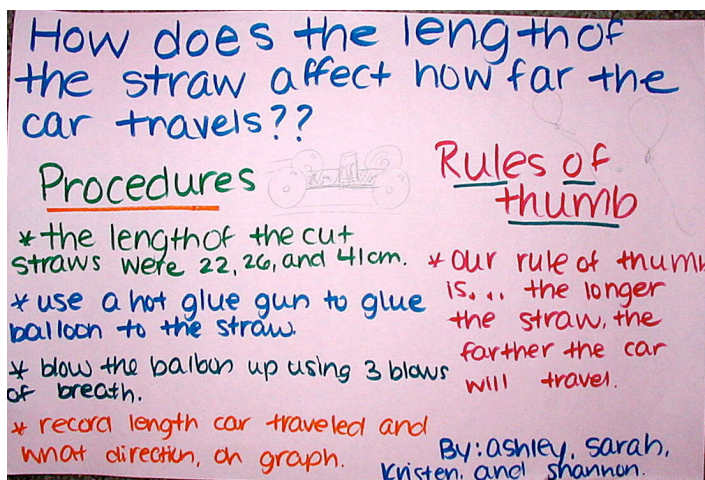 How does the length of
the straw affect how far the
car travels??
Procedures
* the length of the cut
straws were 22, 26, and 41cm.
* use a hot glue gun to glue
balloon to the straw.
* blow the balloon up using 3 blows
of breath.
* record length car traveled and
what direction, on graph.
Rules of
thumb
* our rule of thumb
is... the longer
the straw, the
farther the car
will travel.
By: ashley, sarah,
Kristen, and shannon.